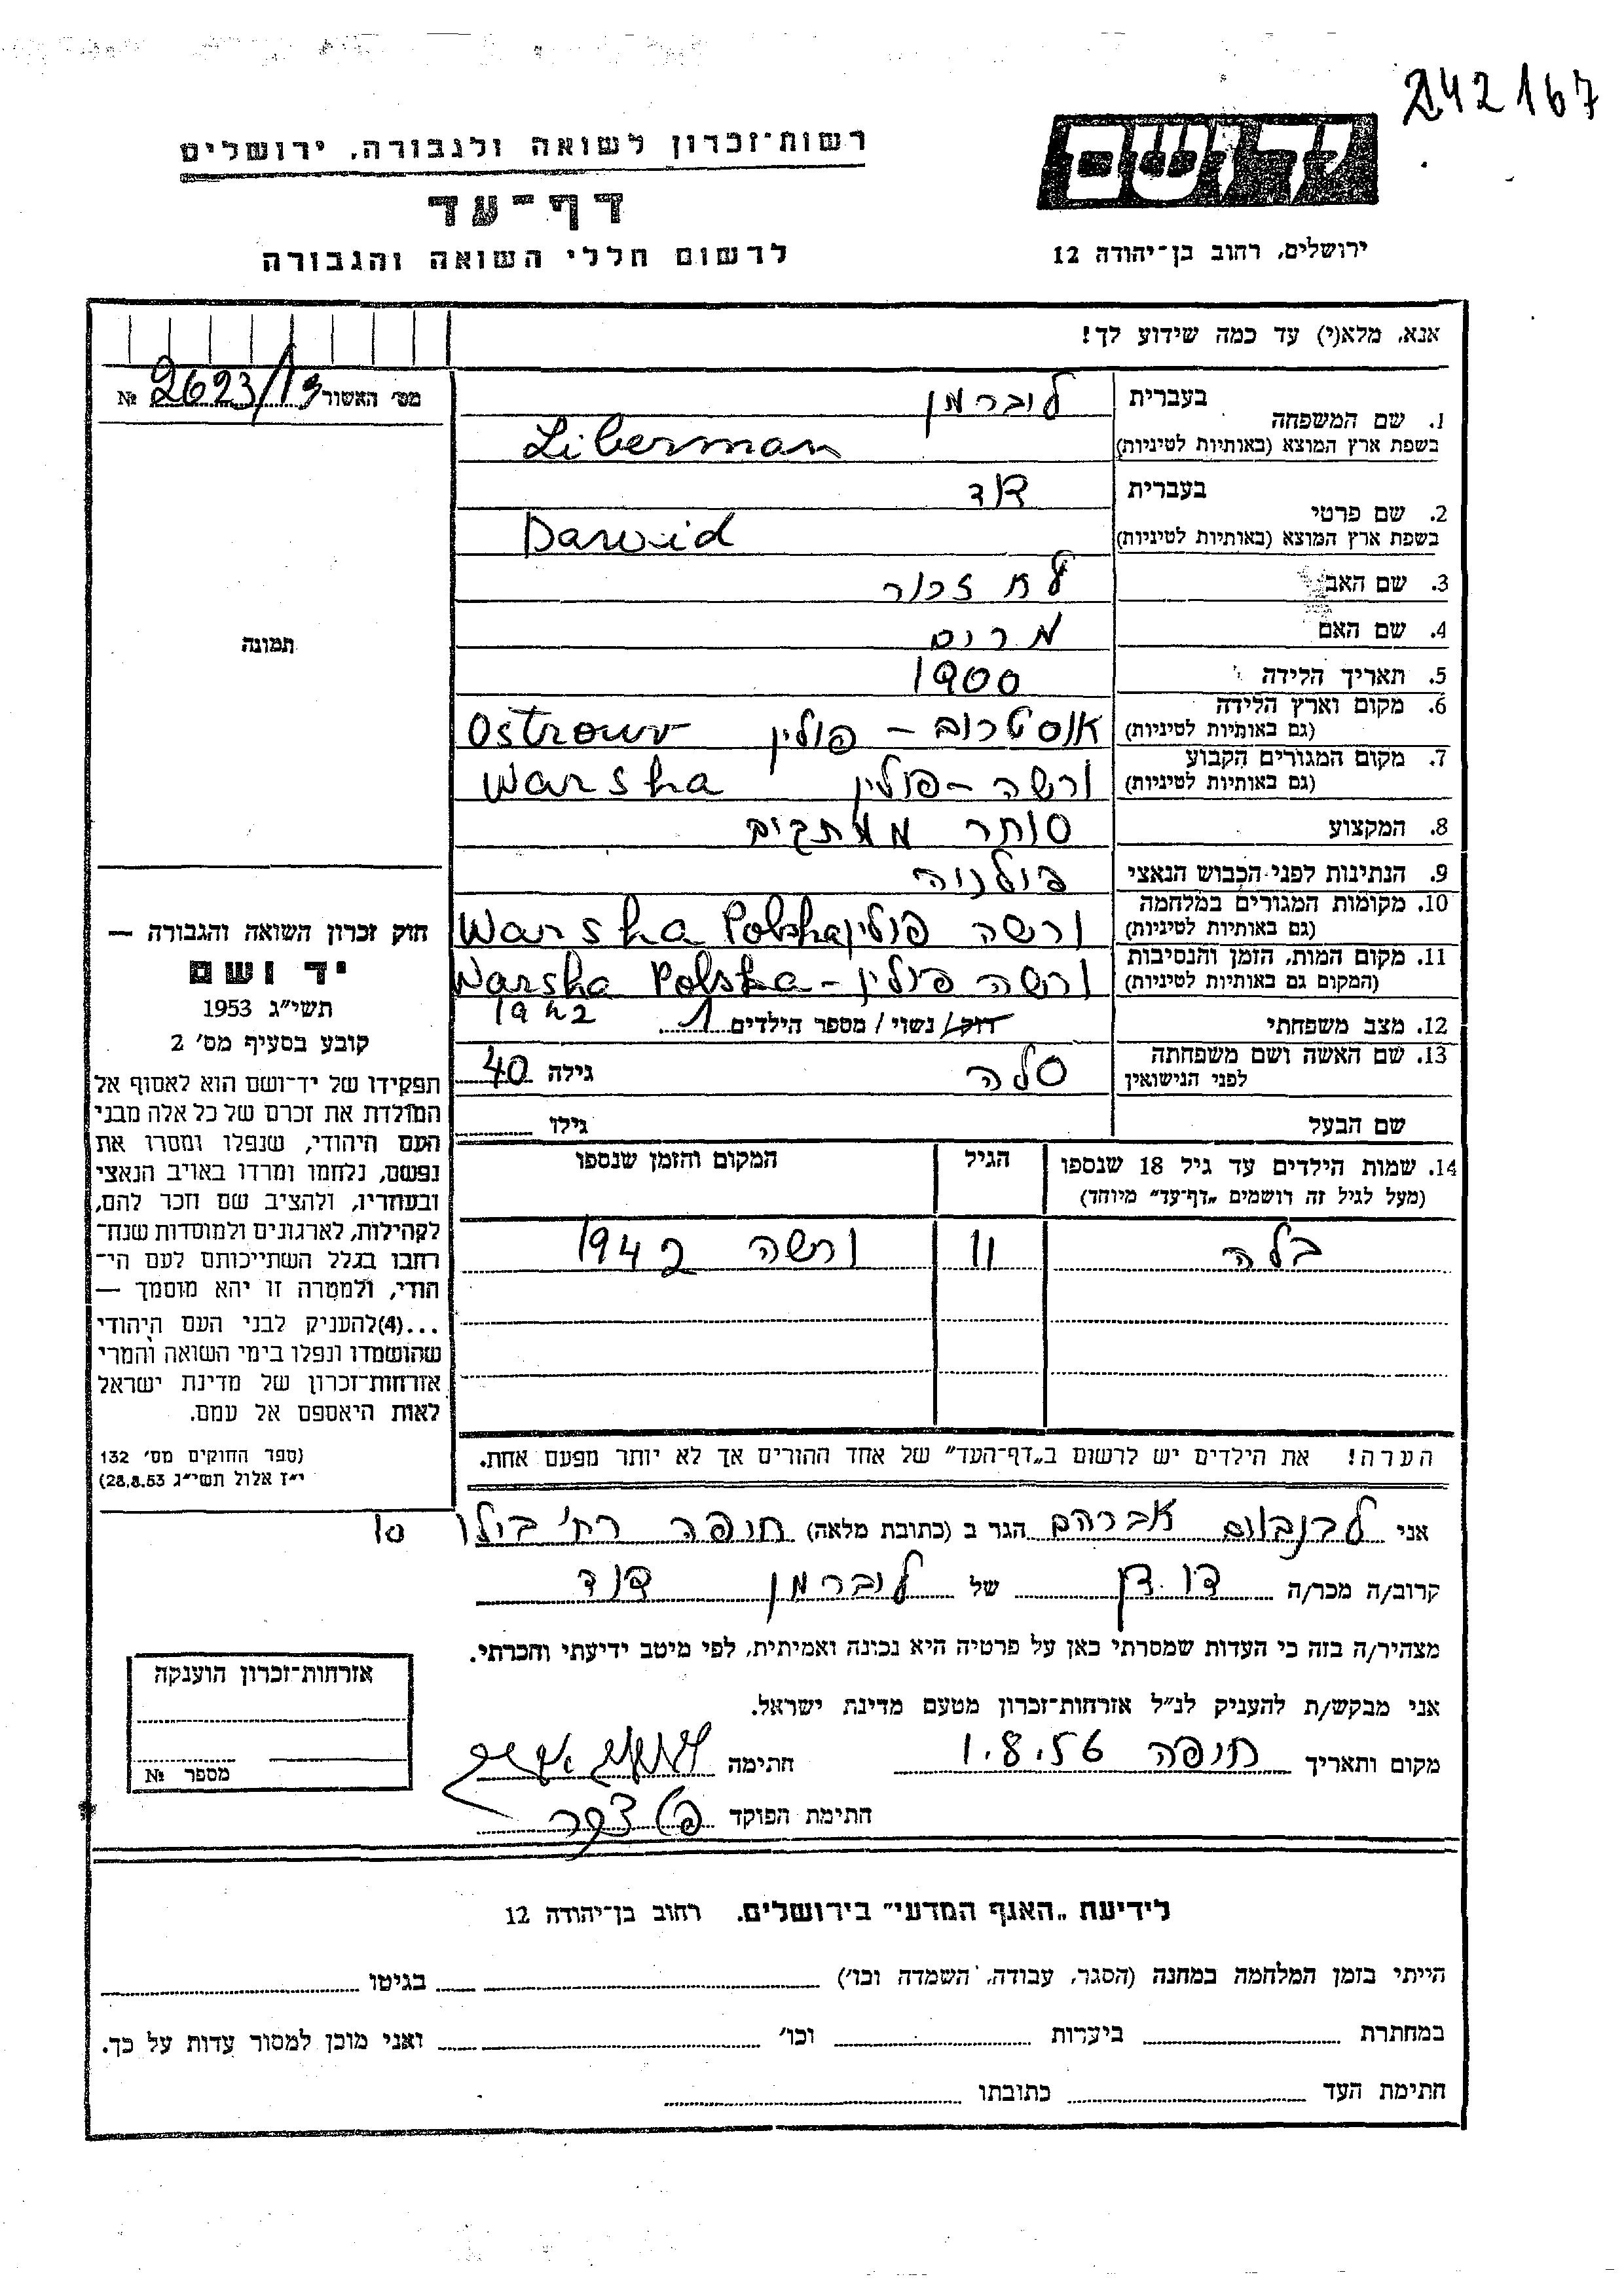 242167
יד ושם
רשות־זכרון לשואה ולגבורה, ירושלים
דף־עד
לרשום חללי השואה והגבורה
ירושלים, רחוב בן־יהודה 12
אנא, מלא(י) עד כמה שידוע לך!
מס׳ האשור 2623/13 №
תמונה
1. שם המשפחה
בעברית ליברמן
בשפת ארץ המוצא (באותיות לטיניות) Liberman
2. שם פרטי
בעברית דוד
בשפת ארץ המוצא (באותיות לטיניות) Dawid
3. שם האב לא זכור
4. שם האם מרים
5. תאריך הלידה 1900
6. מקום וארץ הלידה
(גם באותיות לטיניות) אוסטרוב – פולין Ostrouv
7. מקום המגורים הקבוע
(גם באותיות לטיניות) ורשה – פולין Warsha
8. המקצוע סוחר ממתקים
9. הנתינות לפני הכבוש הנאצי פולניה
10. מקומות המגורים במלחמה
(גם באותיות לטיניות) ורשה פולין Warsha Polska
11. מקום המות, הזמן והנסיבות
(המקום גם באותיות לטיניות) ורשה פולין – Warsha Polska
1942
12. מצב משפחתי רוק/ נשוי / מספר הילדים 1
13. שם האשה ושם משפחתה
לפני הנישואין סלה גילה 40
שם הבעל גילו
14. שמות הילדים עד גיל 18 שנספו הגיל המקום והזמן שנספו
(מעל לגיל זה רושמים „דף־עד״ מיוחד)
בלה 11 ורשה 1942
הערה! את הילדים יש לרשום ב„דף־העד״ של אחד ההורים אך לא יותר מפעם אחת.
חוק זכרון השואה והגבורה —
יד ושם
תשי״ג 1953
קובע בסעיף מס׳ 2
תפקידו של יד־ושם הוא לאסוף אל
המולדת את זכרם של כל אלה מבני
העם היהודי, שנפלו ומסרו את
נפשם, נלחמו ומרדו באויב הנאצי
ובעוזריו, ולהציב שם וזכר להם,
לקהילות, לארגונים ולמוסדות שנח־
רחבו בגלל השתייכותם לעם הי־
הודי, ולמטרה זו יהא מוסמך —
...(4)להעניק לבני העם היהודי
שהושמדו ונפלו בימי השואה והמרי
אזרחות־זכרון של מדינת ישראל
לאות היאספם אל עמם.
(ספר החוקים מס׳ 132
י״ז אלול תשי״ג 28.8.53)
אני לבנבוים אברהם הגר ב (כתובת מלאה) חיפה רח׳ בילו 10
קרוב/ה מכר/ה דודן של ליברמן דוד
מצהיר/ה בזה כי העדות שמסרתי כאן על פרטיה היא נכונה ואמיתית, לפי מיטב ידיעתי והכרתי.
אני מבקש/ת להעניק לנ״ל אזרחות־זכרון מטעם מדינת ישראל.
מקום ותאריך חיפה 1.8.56 חתימה
חתימת הפוקד
אזרחות־זכרון הוענקה
מספר №
לידיעת „האגף המדעי״ בירושלים. רחוב בן־יהודה 12
הייתי בזמן המלחמה במחנה (הסגר, עבודה, השמדה וכו׳) בגיטו
במחתרת ביערות וכו׳ ואני מוכן למסור עדות על כך.
חתימת העד כתובתו